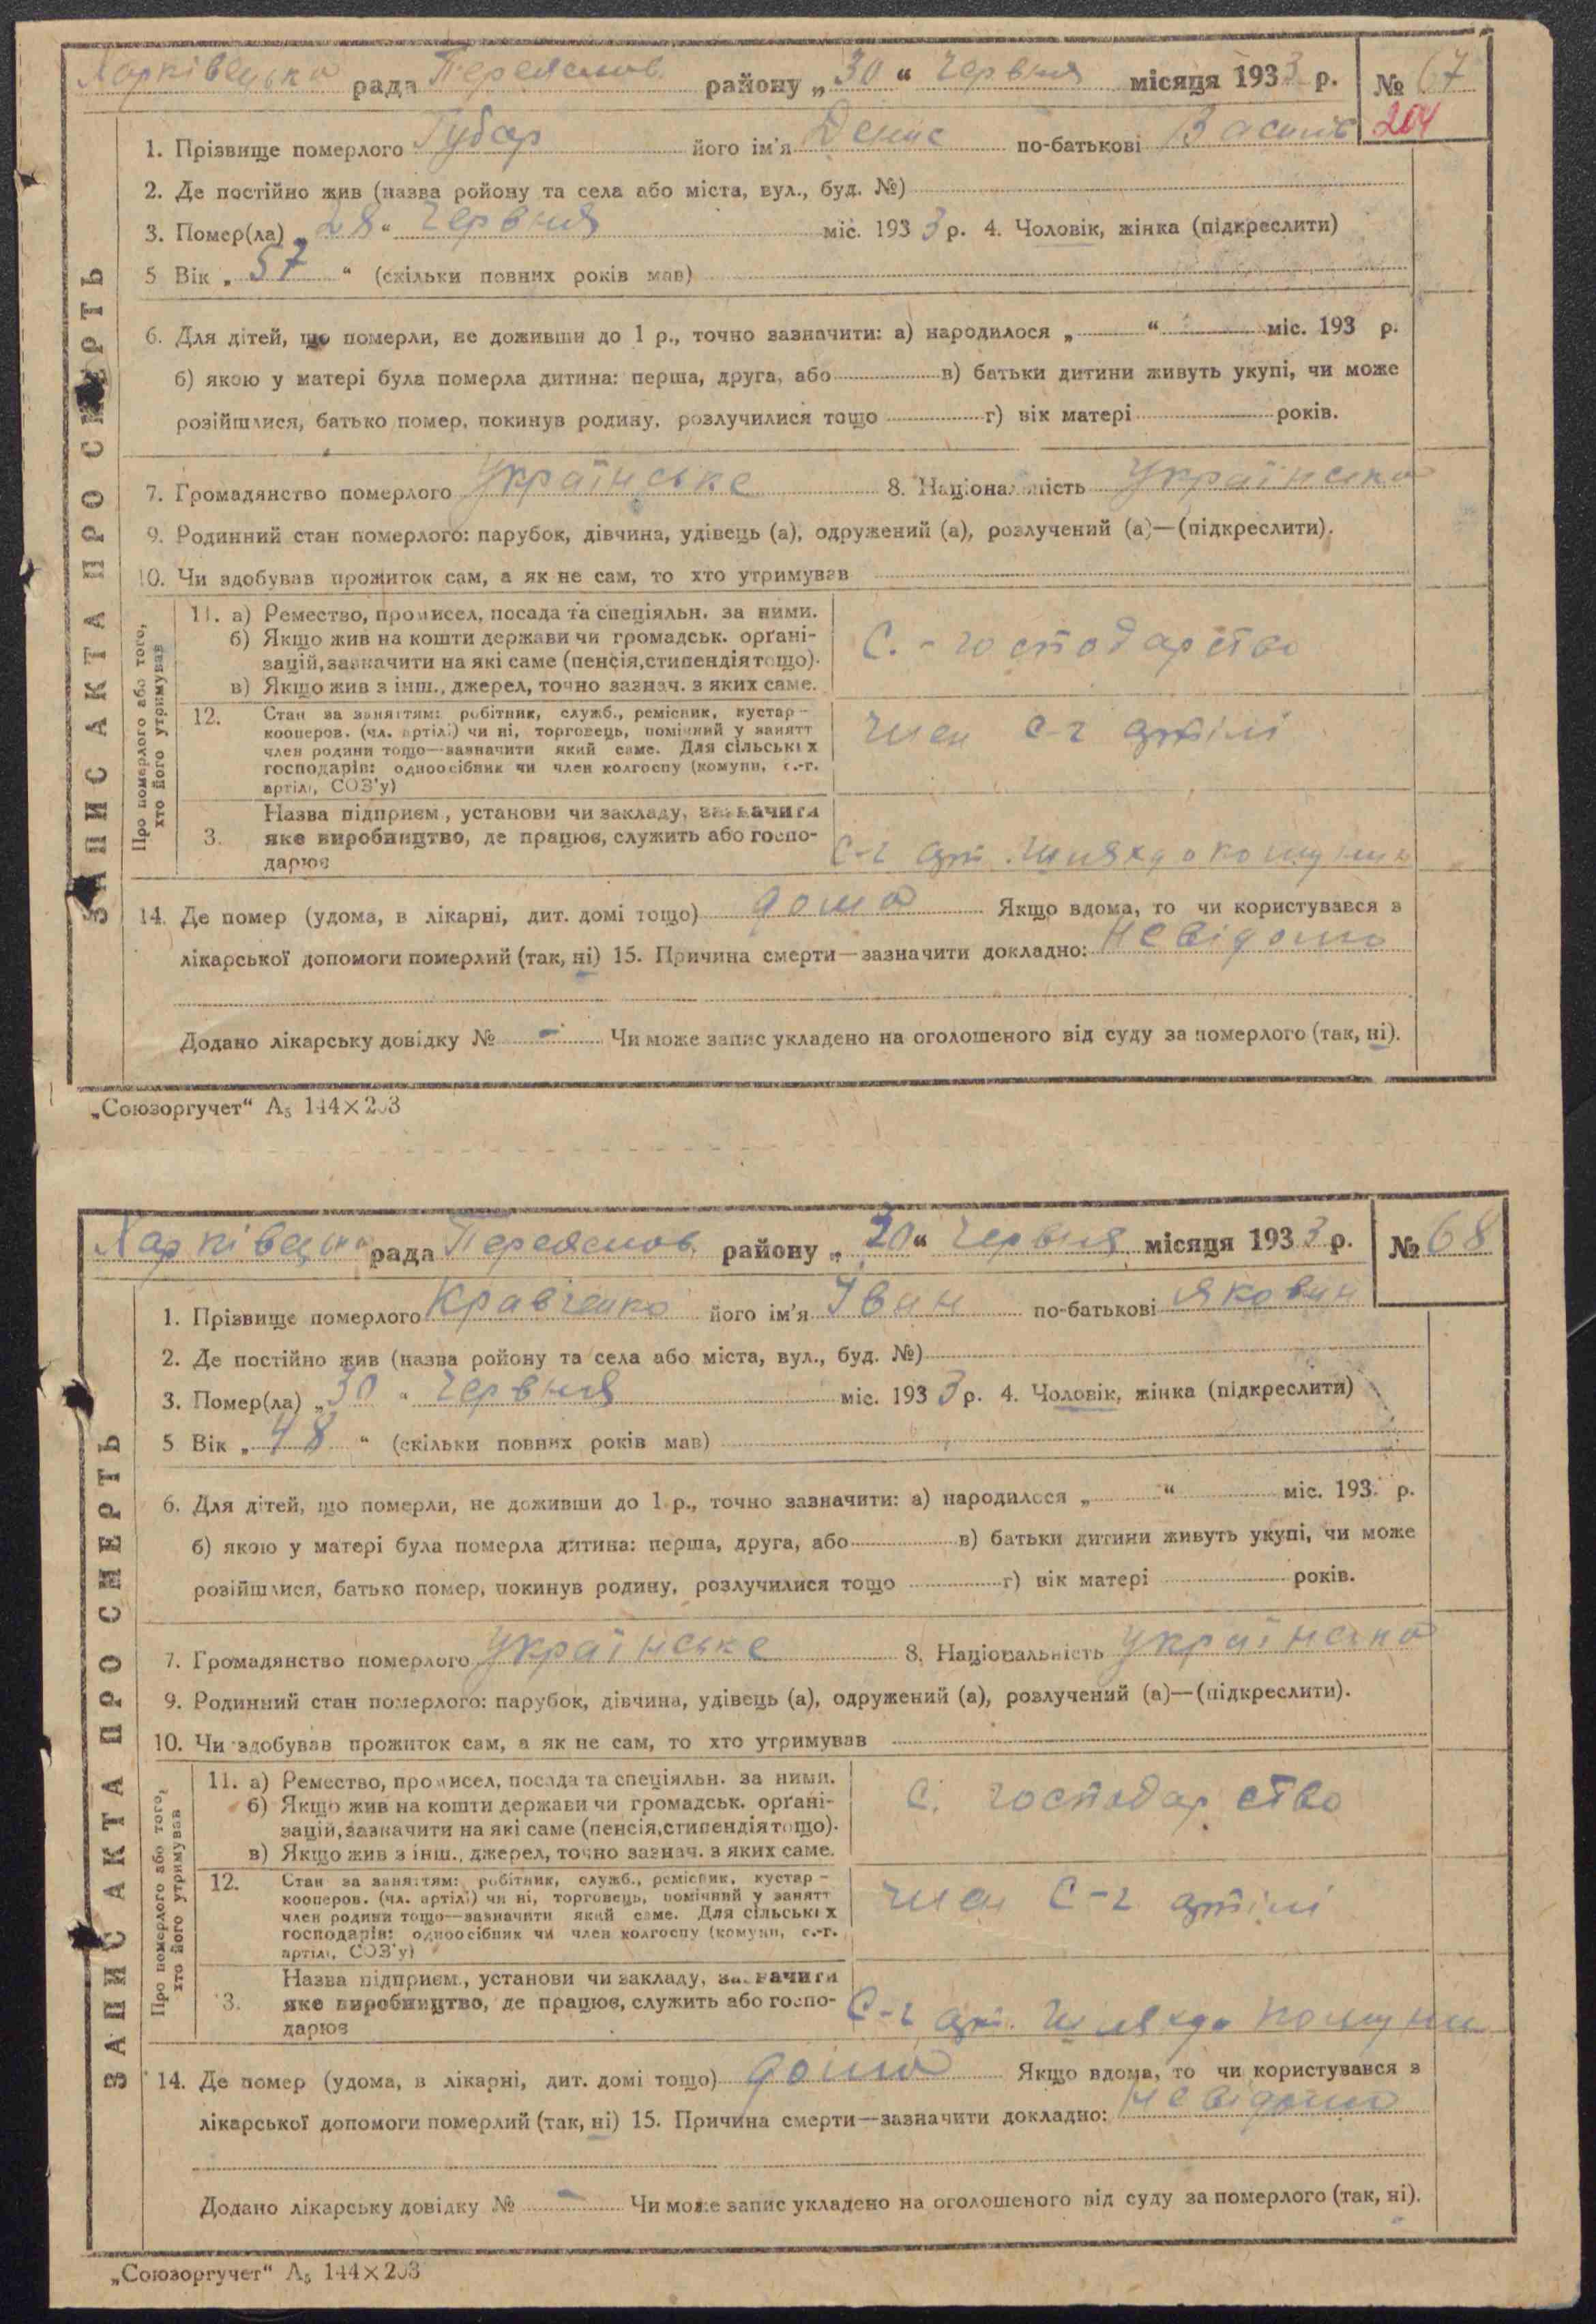 Харківецька рада Переяслов. району „30“ Червня місяця 1933 р. № 67
204
1. Прізвище померлого Губар його ім'я Денис по-батькові Василів
2. Де постійно жив (назва ройону та села або міста, вул., буд. №)
3. Помер(ла) „28“ Червня міс. 1933 р. 4. Чоловік, жінка (підкреслити)
5 Вік „57“ (скільки повних років мав)
6. Для дітей, що померли, не доживши до 1 р., точно зазначити: а) народилося „ “ міс. 193 р.
б) якою у матері була померла дитина: перша, друга, або в) батьки дитини живуть укупі, чи може
розійшлися, батько помер, покинув родину, розлучилися тощо г) вік матері років.
7. Громадянство померлого Українське 8. Національність Українська
9. Родинний стан померлого: парубок, дівчина, удівець (а), одружений (а), розлучений (а)—(підкреслити).
10. Чи здобував прожиток сам, а як не сам, то хто утримував
ЗАПИС АКТА ПРО СМЕРТЬ
Про померлого або того,
хто його утримував
11. а) Ремество, промисел, посада та спеціяльн. за ними.
б) Якщо жив на кошти держави чи громадськ. орґані-
зацій, зазначити на які саме (пенсія, стипендія тощо).
в) Якщо жив з інш., джерел, точно зазнач. з яких саме.
С.-господарство
12. Стан за заняттям: робітник, служб., ремісник, кустар –
кооперов. (чл. артілі) чи ні, торговець, помічний у занятт
член родини тощо—зазначити який саме. Для сільських
господарів: одноосібник чи член колгоспу (комуни, с.-г.
артілі, СОЗ'у)
член с-г артілі
3. Назва підприєм., установи чи закладу, зазначити
яке виробництво, де працює, служить або госпо-
дарює
С-г арт. Шлях до комуни
14. Де помер (удома, в лікарні, дит. домі тощо) дома Якщо вдома, то чи користувався з
лікарської допомоги померлий (так, ні) 15. Причина смерти—зазначити докладно: невідомо
Додано лікарську довідку № - Чи може запис укладено на оголошеного від суду за померлого (так, ні).
„Союзоргучет“ А5 144×203
Харківецька рада Переяслов. району „30“ Червня місяця 1933 р. № 68
1. Прізвище померлого Кравченко його ім'я Іван по-батькові Якович
2. Де постійно жив (назва ройону та села або міста, вул., буд. №)
3. Помер(ла) „30“ Червня міс. 1933 р. 4. Чоловік, жінка (підкреслити)
5 Вік „48“ (скільки повних років мав)
6. Для дітей, що померли, не доживши до 1 р., точно зазначити: а) народилося „ “ міс. 193 р.
б) якою у матері була померла дитина: перша, друга, або в) батьки дитини живуть укупі, чи може
розійшлися, батько помер, покинув родину, розлучилися тощо г) вік матері років.
7. Громадянство померлого Українське 8. Національність Українська
9. Родинний стан померлого: парубок, дівчина, удівець (а), одружений (а), розлучений (а)—(підкреслити).
10. Чи здобував прожиток сам, а як не сам, то хто утримував
ЗАПИС АКТА ПРО СМЕРТЬ
Про померлого або того,
хто його утримував
11. а) Ремество, промисел, посада та спеціяльн. за ними.
б) Якщо жив на кошти держави чи громадськ. орґані-
зацій, зазначити на які саме (пенсія, стипендія тощо).
в) Якщо жив з інш., джерел, точно зазнач. з яких саме.
С. господарство
12. Стан за заняттям: робітник, служб., ремісник, кустар –
кооперов. (чл. артілі) чи ні, торговець, помічний у занятт
член родини тощо—зазначити який саме. Для сільських
господарів: одноосібник чи член колгоспу (комуни, с.-г.
артілі, СОЗ'у)
член С-г артілі
3. Назва підприєм., установи чи закладу, зазначити
яке виробництво, де працює, служить або госпо-
дарює
С-г арт. Шлях до комуни
14. Де помер (удома, в лікарні, дит. домі тощо) дома Якщо вдома, то чи користувався з
лікарської допомоги померлий (так, ні) 15. Причина смерти—зазначити докладно: невідомо
Додано лікарську довідку № - Чи може запис укладено на оголошеного від суду за померлого (так, ні).
„Союзоргучет“ А5 144×203